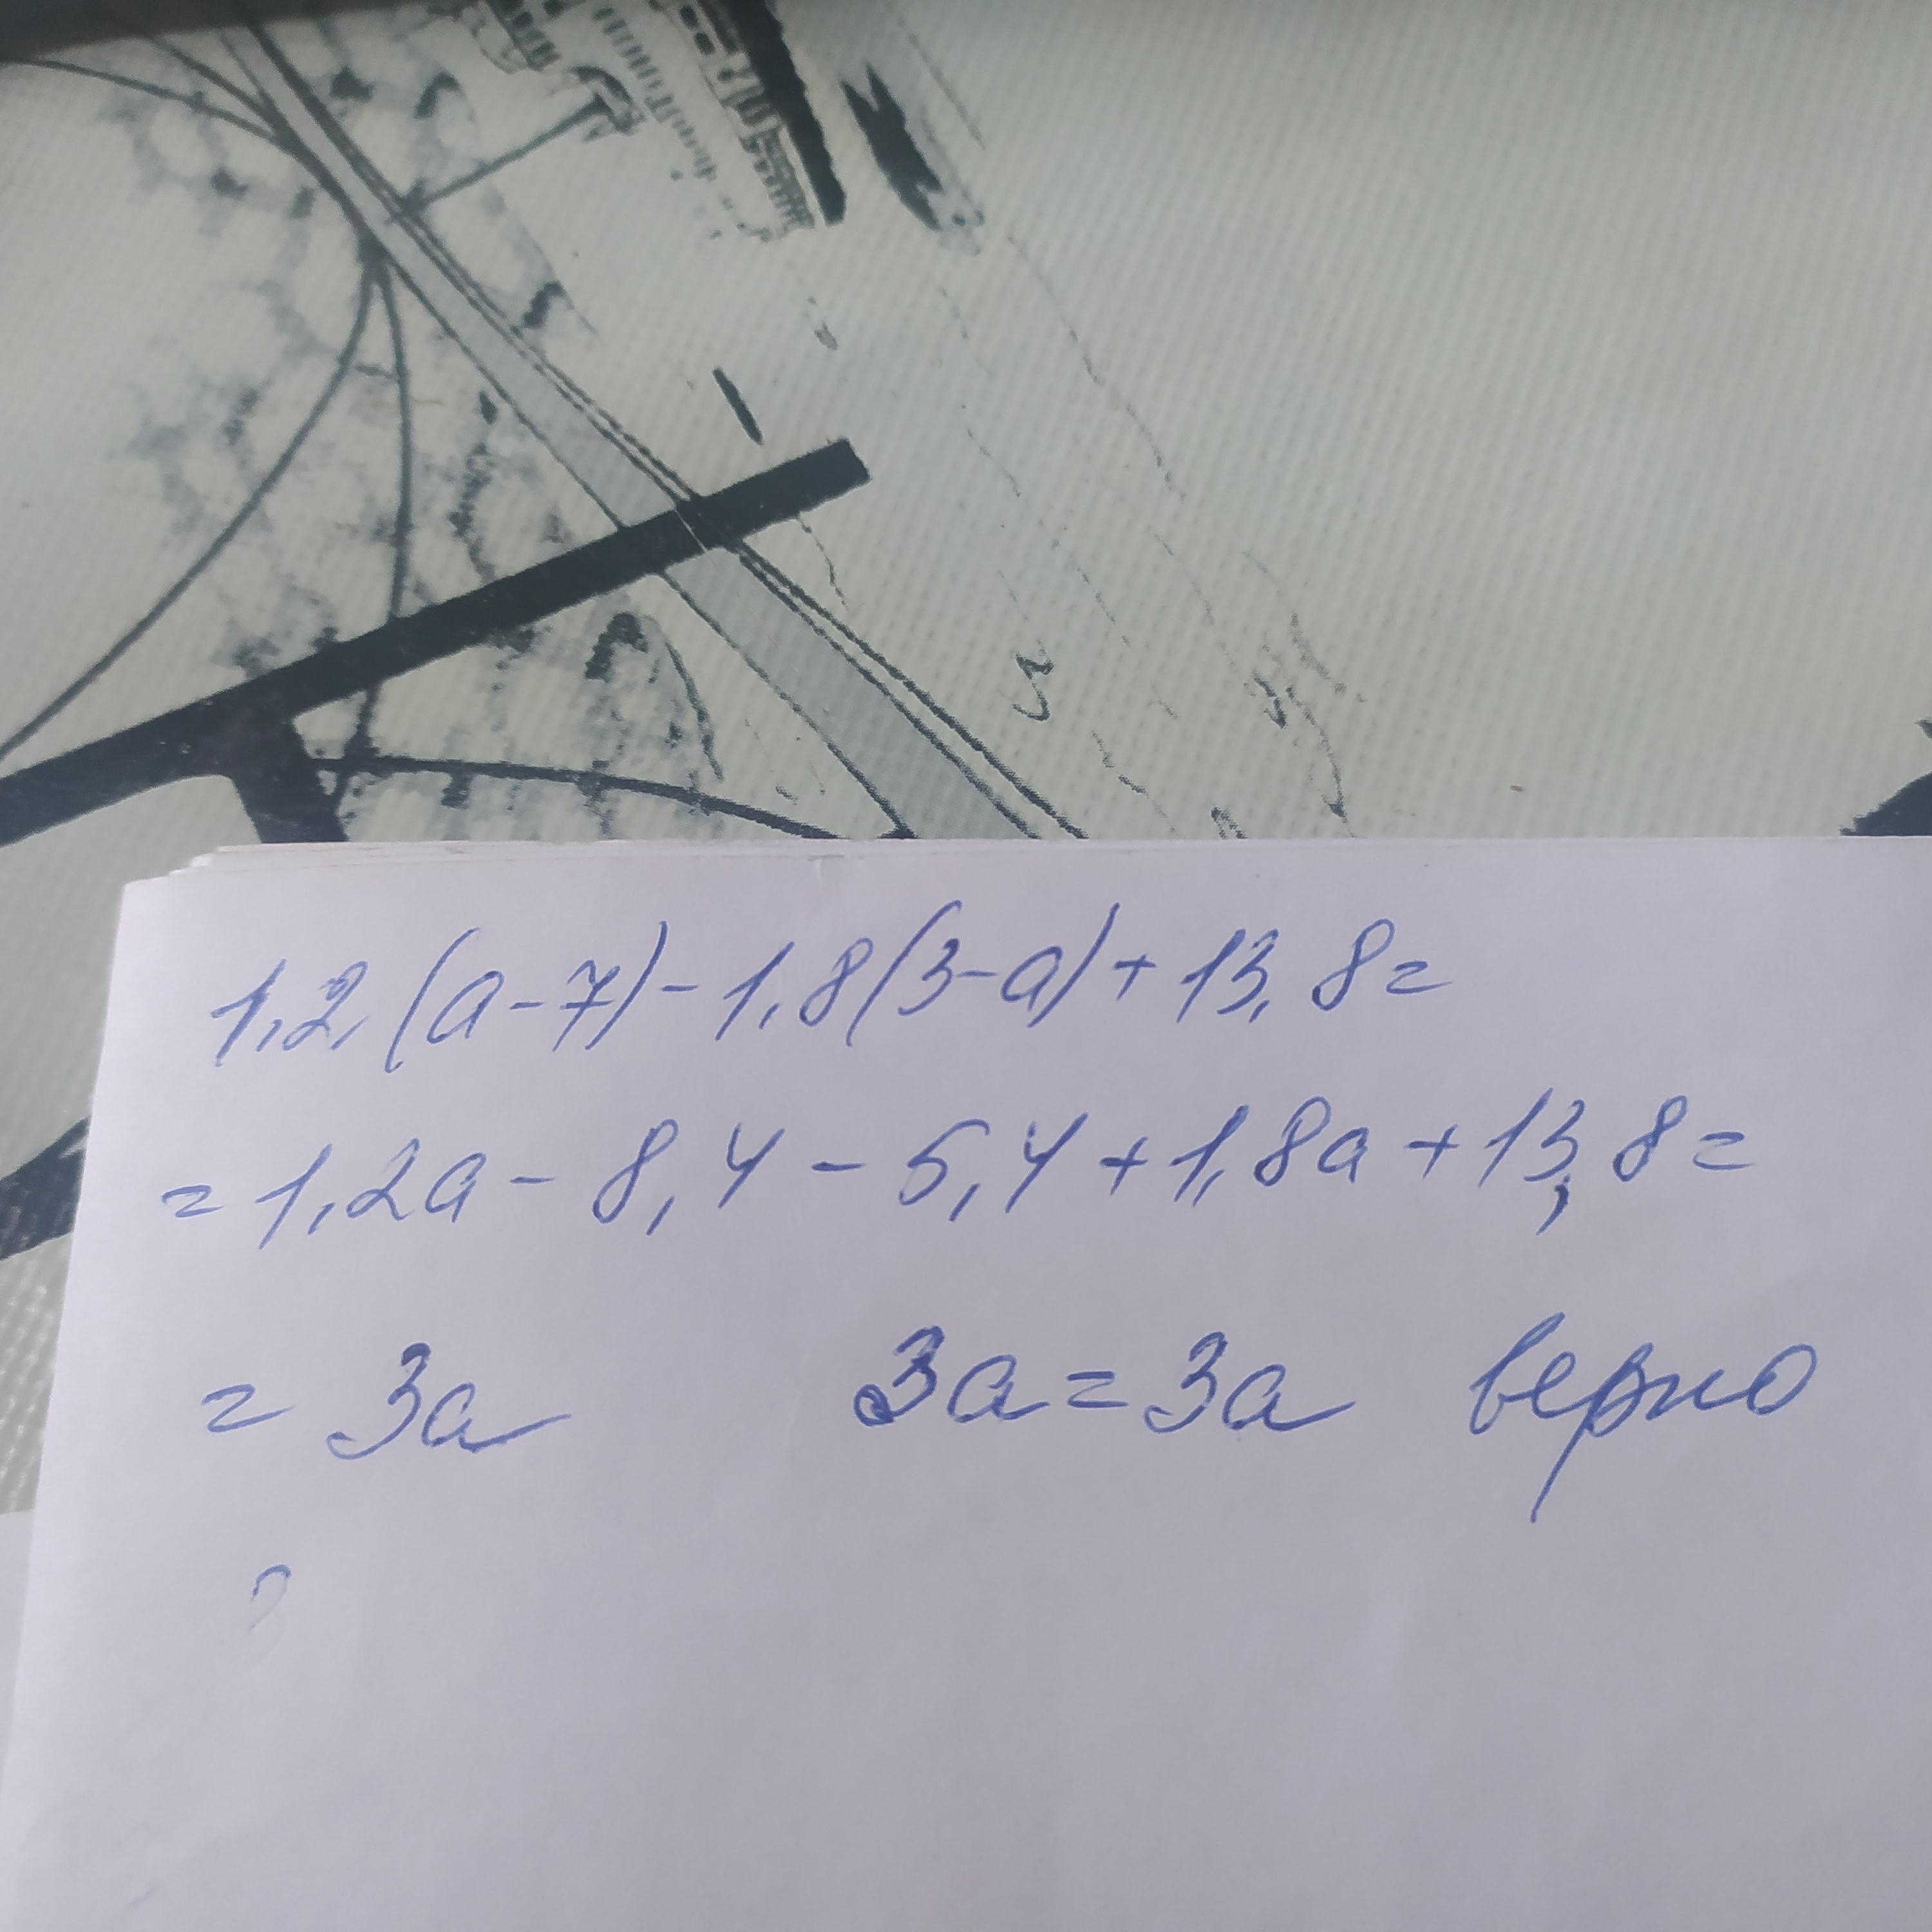 1,2,(a-7)-1,8(3-a)+13,8=
=1,2a-8,4-5,4+1,8a+13,8=
=3a 3a=3a верно